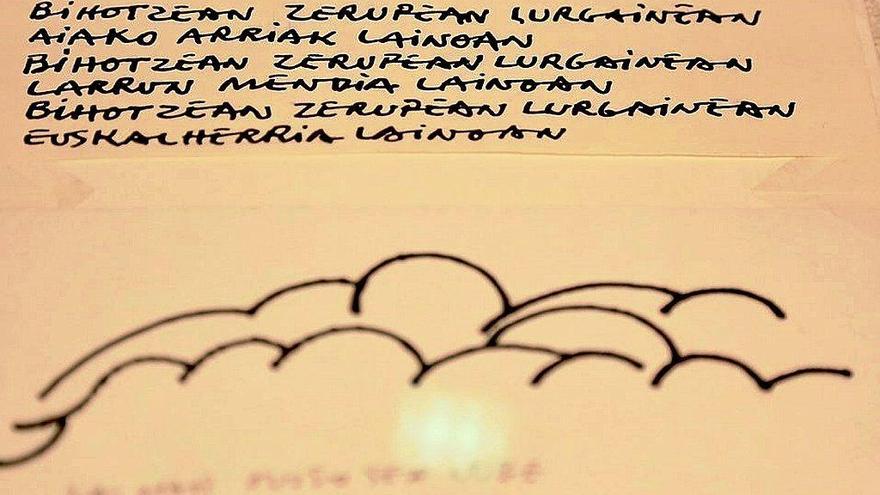 BIHOTZEAN ZERUPEAN LURGAINEAN
AIAKO ARRIAK LAINOAN
BIHOTZEAN ZERUPEAN LURGAINEAN
LARRUN MENDIA LAINOAN
BIHOTZEAN ZERUPEAN LURGAINEAN
EUSKALHERRIA LAINOAN